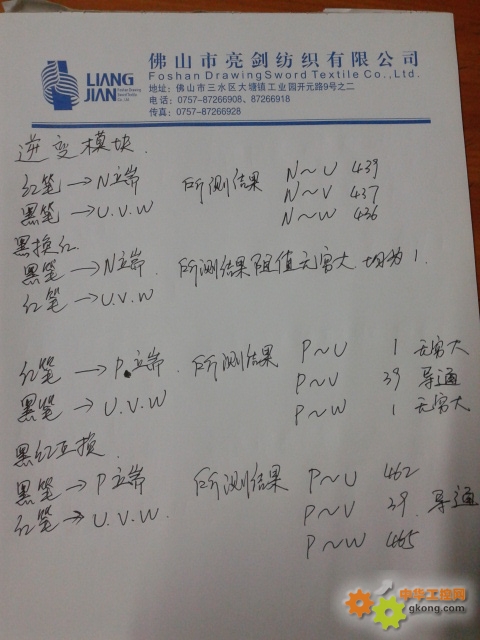 佛山市亮剑纺织有限公司
LIANG JIAN
Foshan DrawingSword Textile Co.,Ltd.
地址：佛山市三水区大塘镇工业园开元路9号之二
电话：0757-87266908、87266918
传真：0757-87266928
逆变模块.
红笔→N端 所测结果 N～U 439
黑笔→U.V.W N～V 437
N～W 436
黑换红
黑笔→N端. 所测结果阻值无穷大 均为1.
红笔→U.V.W
红笔→P端. 所测结果 P～U 1 无穷大
黑笔→U.V.W P～V 39 导通
P～W 1 无穷大
黑红互换.
黑笔→P端 所测结果 P～U 462
红笔→U.V.W. P～V 39. 导通
P～W 465
中华工控网
gkong.com